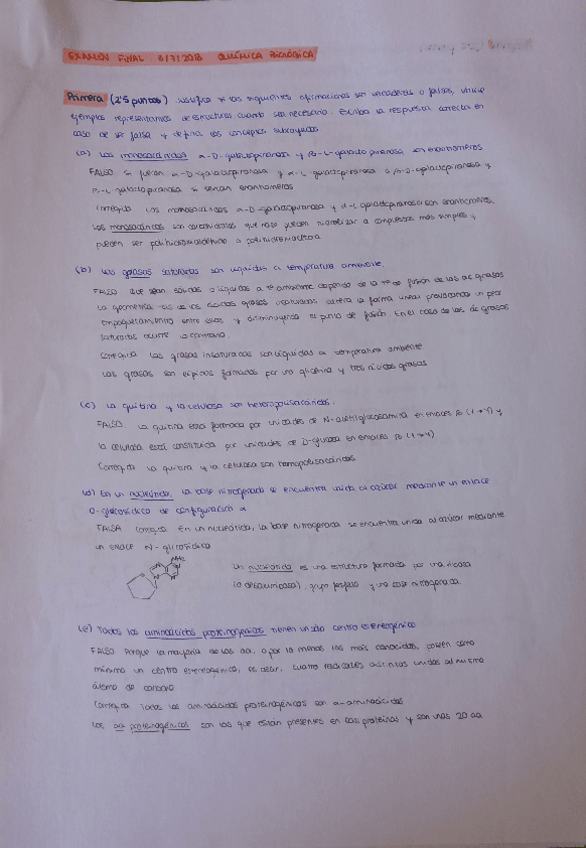 EXAMEN FINAL 8/7/2018 QUÍMICA BIOLÓGICA
Primera (2'5 puntos) Justifica si las siguientes afirmaciones son verdaderas o falsas, utilice
ejemplos representativos de estructuras cuando sea necesario. Escriba la respuesta correcta en
caso de ser falsa y defina los conceptos subrayados
(a) Los monosacáridos α-D-galactopiranosa y β-L-galactopiranosa son enantiómeros
FALSO si fueran α-D-galactopiranosa y α-L-galactopiranosa o β-D-galactopiranosa y
β-L galactopiranosa si serían enantiómeros
Corregida Los monosacáridos α-D-galactopiranosa y α-L-galactopiranosa son enantiómeros.
Los monosacáridos son carbohidratos que no se pueden hidrolizar a compuestos más simples y
pueden ser polihidroxialdehído o polihidroxicetona
(b) Las grasas saturadas son líquidas a temperatura ambiente.
FALSO Que sean sólidas o líquidas a tª ambiente depende de la tª de fusión de los ác grasos
La geometría cis de los ácidos grasos insaturados altera la forma lineal provocando un peor
empaquetamiento entre ellos y disminuyendo el punto de fusión. En el caso de los ác grasos
saturados ocurre lo contrario.
Corregida Las grasas insaturadas son líquidas a temperatura ambiente
Las grasas son lípidos formados por una glicerina y tres ácidos grasos
(c) La quitina y la celulosa son heteropolisacáridos.
FALSO. La quitina está formada por unidades de N-acetilglucosamina en enlaces β (1→4) y
la celulosa está constituida por unidades de D-glucosa en enlaces β (1→4)
Corregida La quitina y la celulosa son homopolisacáridos
(d) En un nucleótido, la base nitrogenada se encuentra unida al azúcar mediante un enlace
O-glicosídico de configuración α
FALSA Corregida En un nucleótido, la base nitrogenada se encuentra unida al azúcar mediante
un enlace N-glicosídico
NH2
N
N
N
N
Un nucleótido es una estructura formada por una ribosa
(o desoxirribosa), grupo fosfato y una base nitrogenada.
(e) Todos los aminoácidos proteinogénicos tienen un sólo centro estereogénico
FALSO Porque la mayoría de los aa, o por lo menos los más conocidos, poseen como
mínimo un centro estereogénico, es decir, cuatro radicales distintos unidos al mismo
átomo de carbono
Corregida Todos los aminoácidos proteinogénicos son α-aminoácidos
Los aa proteinogénicos son los que están presentes en las proteínas y son unos 20 aa